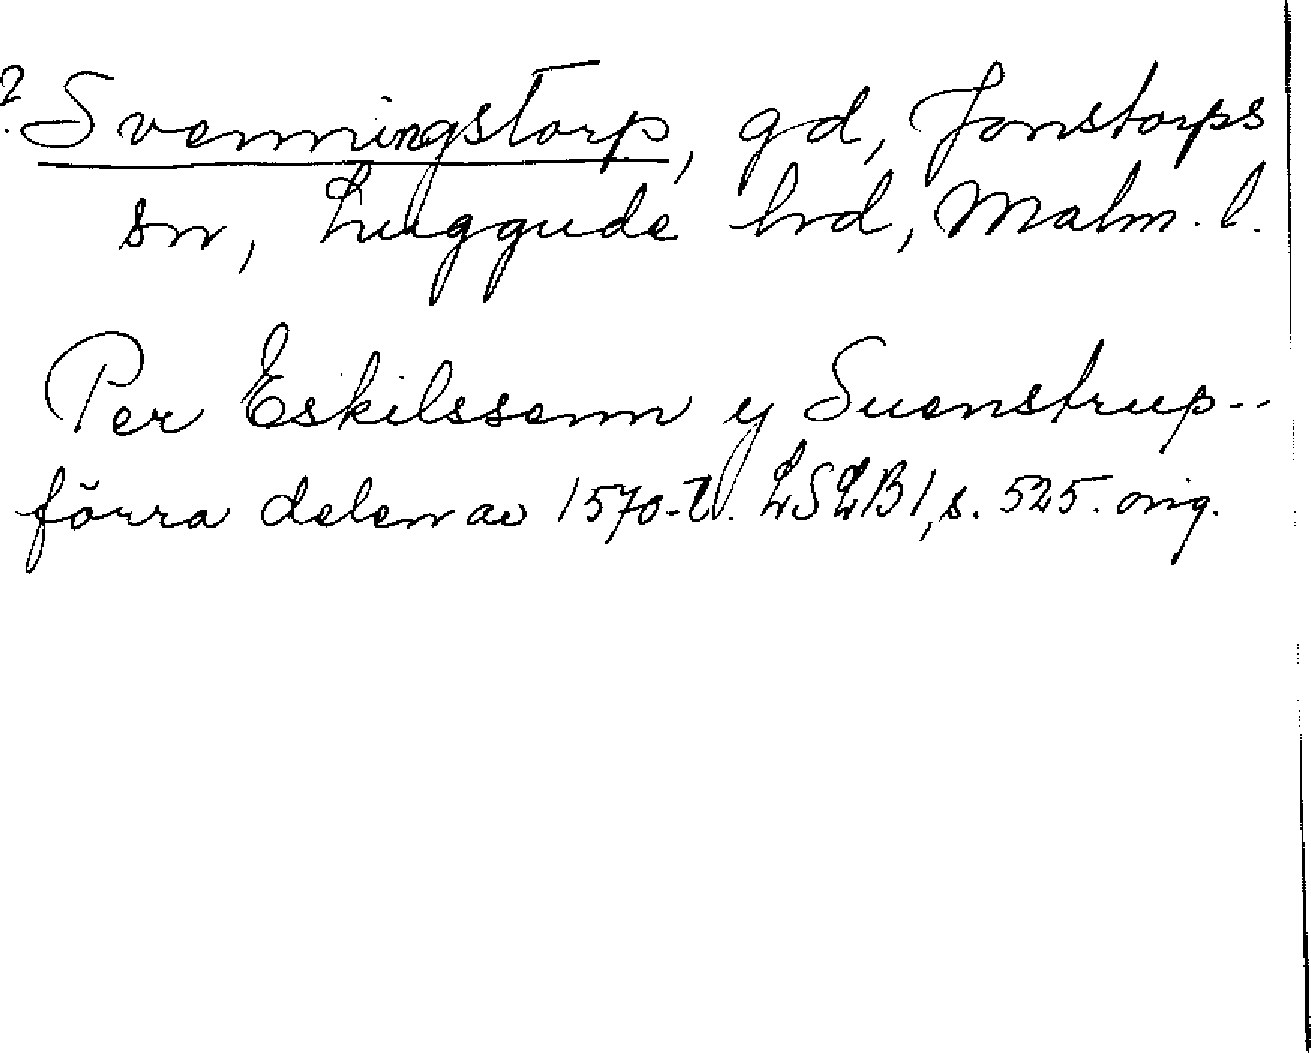 ? Svenningstorp, gd, Jonstorps
sn, Luggude hd, Malm. l.
Per Eskilssenn y Suenstrup --
förra delen av 1570-t. LSLB 1, s. 525. orig.